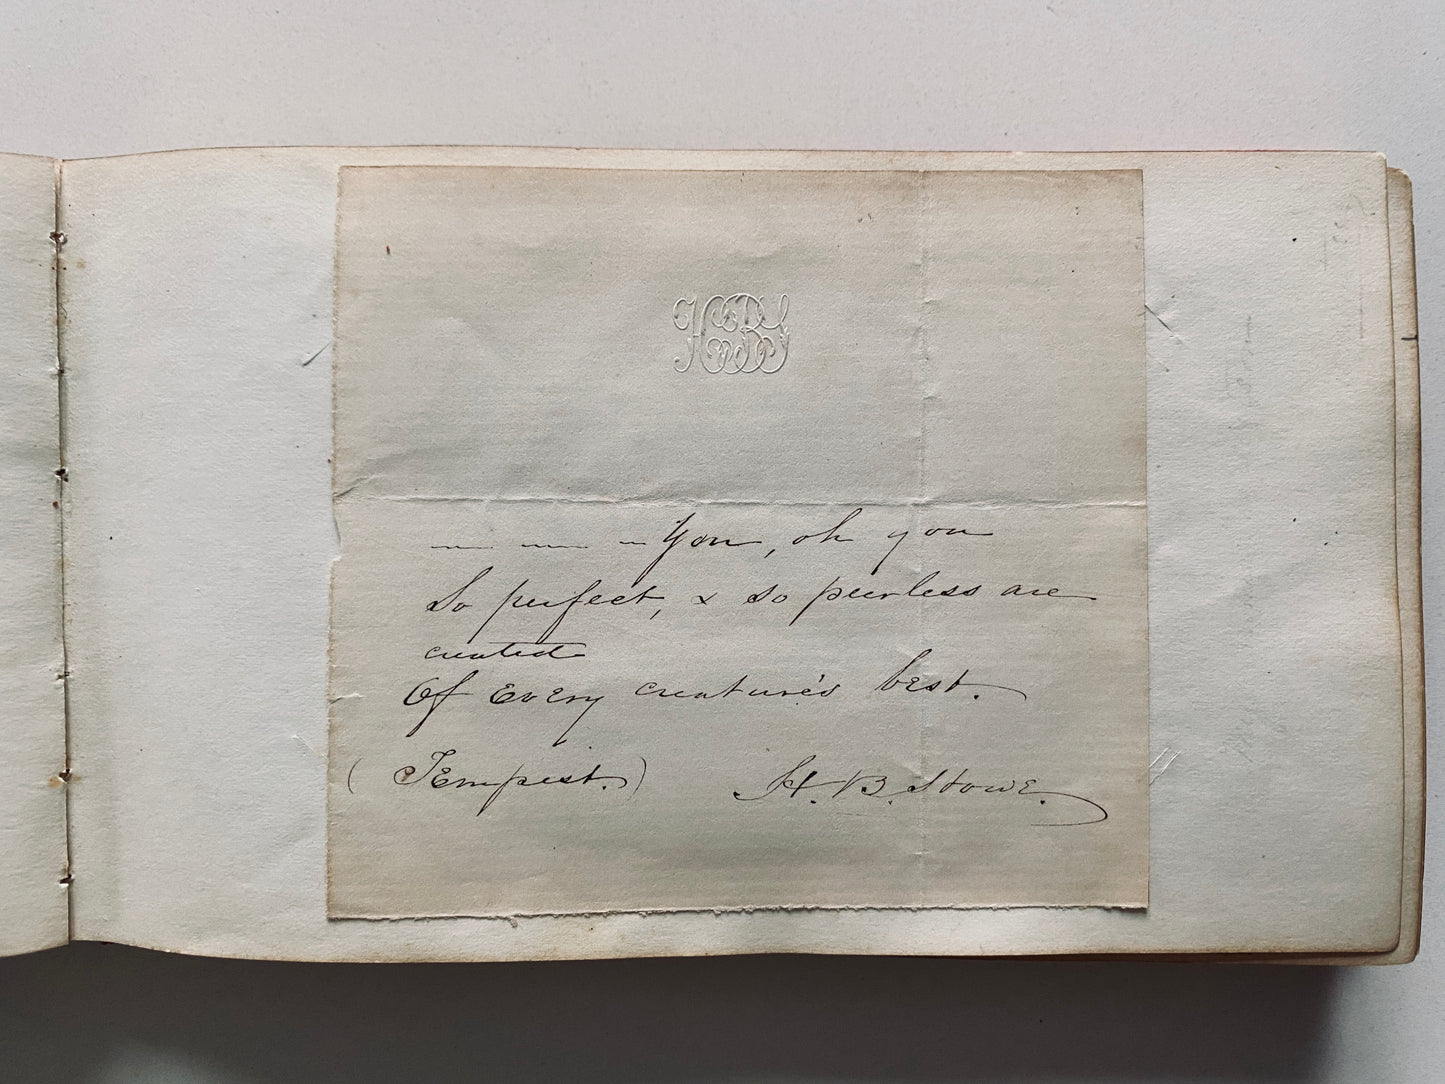 HBS
— — — You, oh you
So perfect, & so peerless are
created
Of Every creature's best.
(Tempest.) H. B. Stowe.